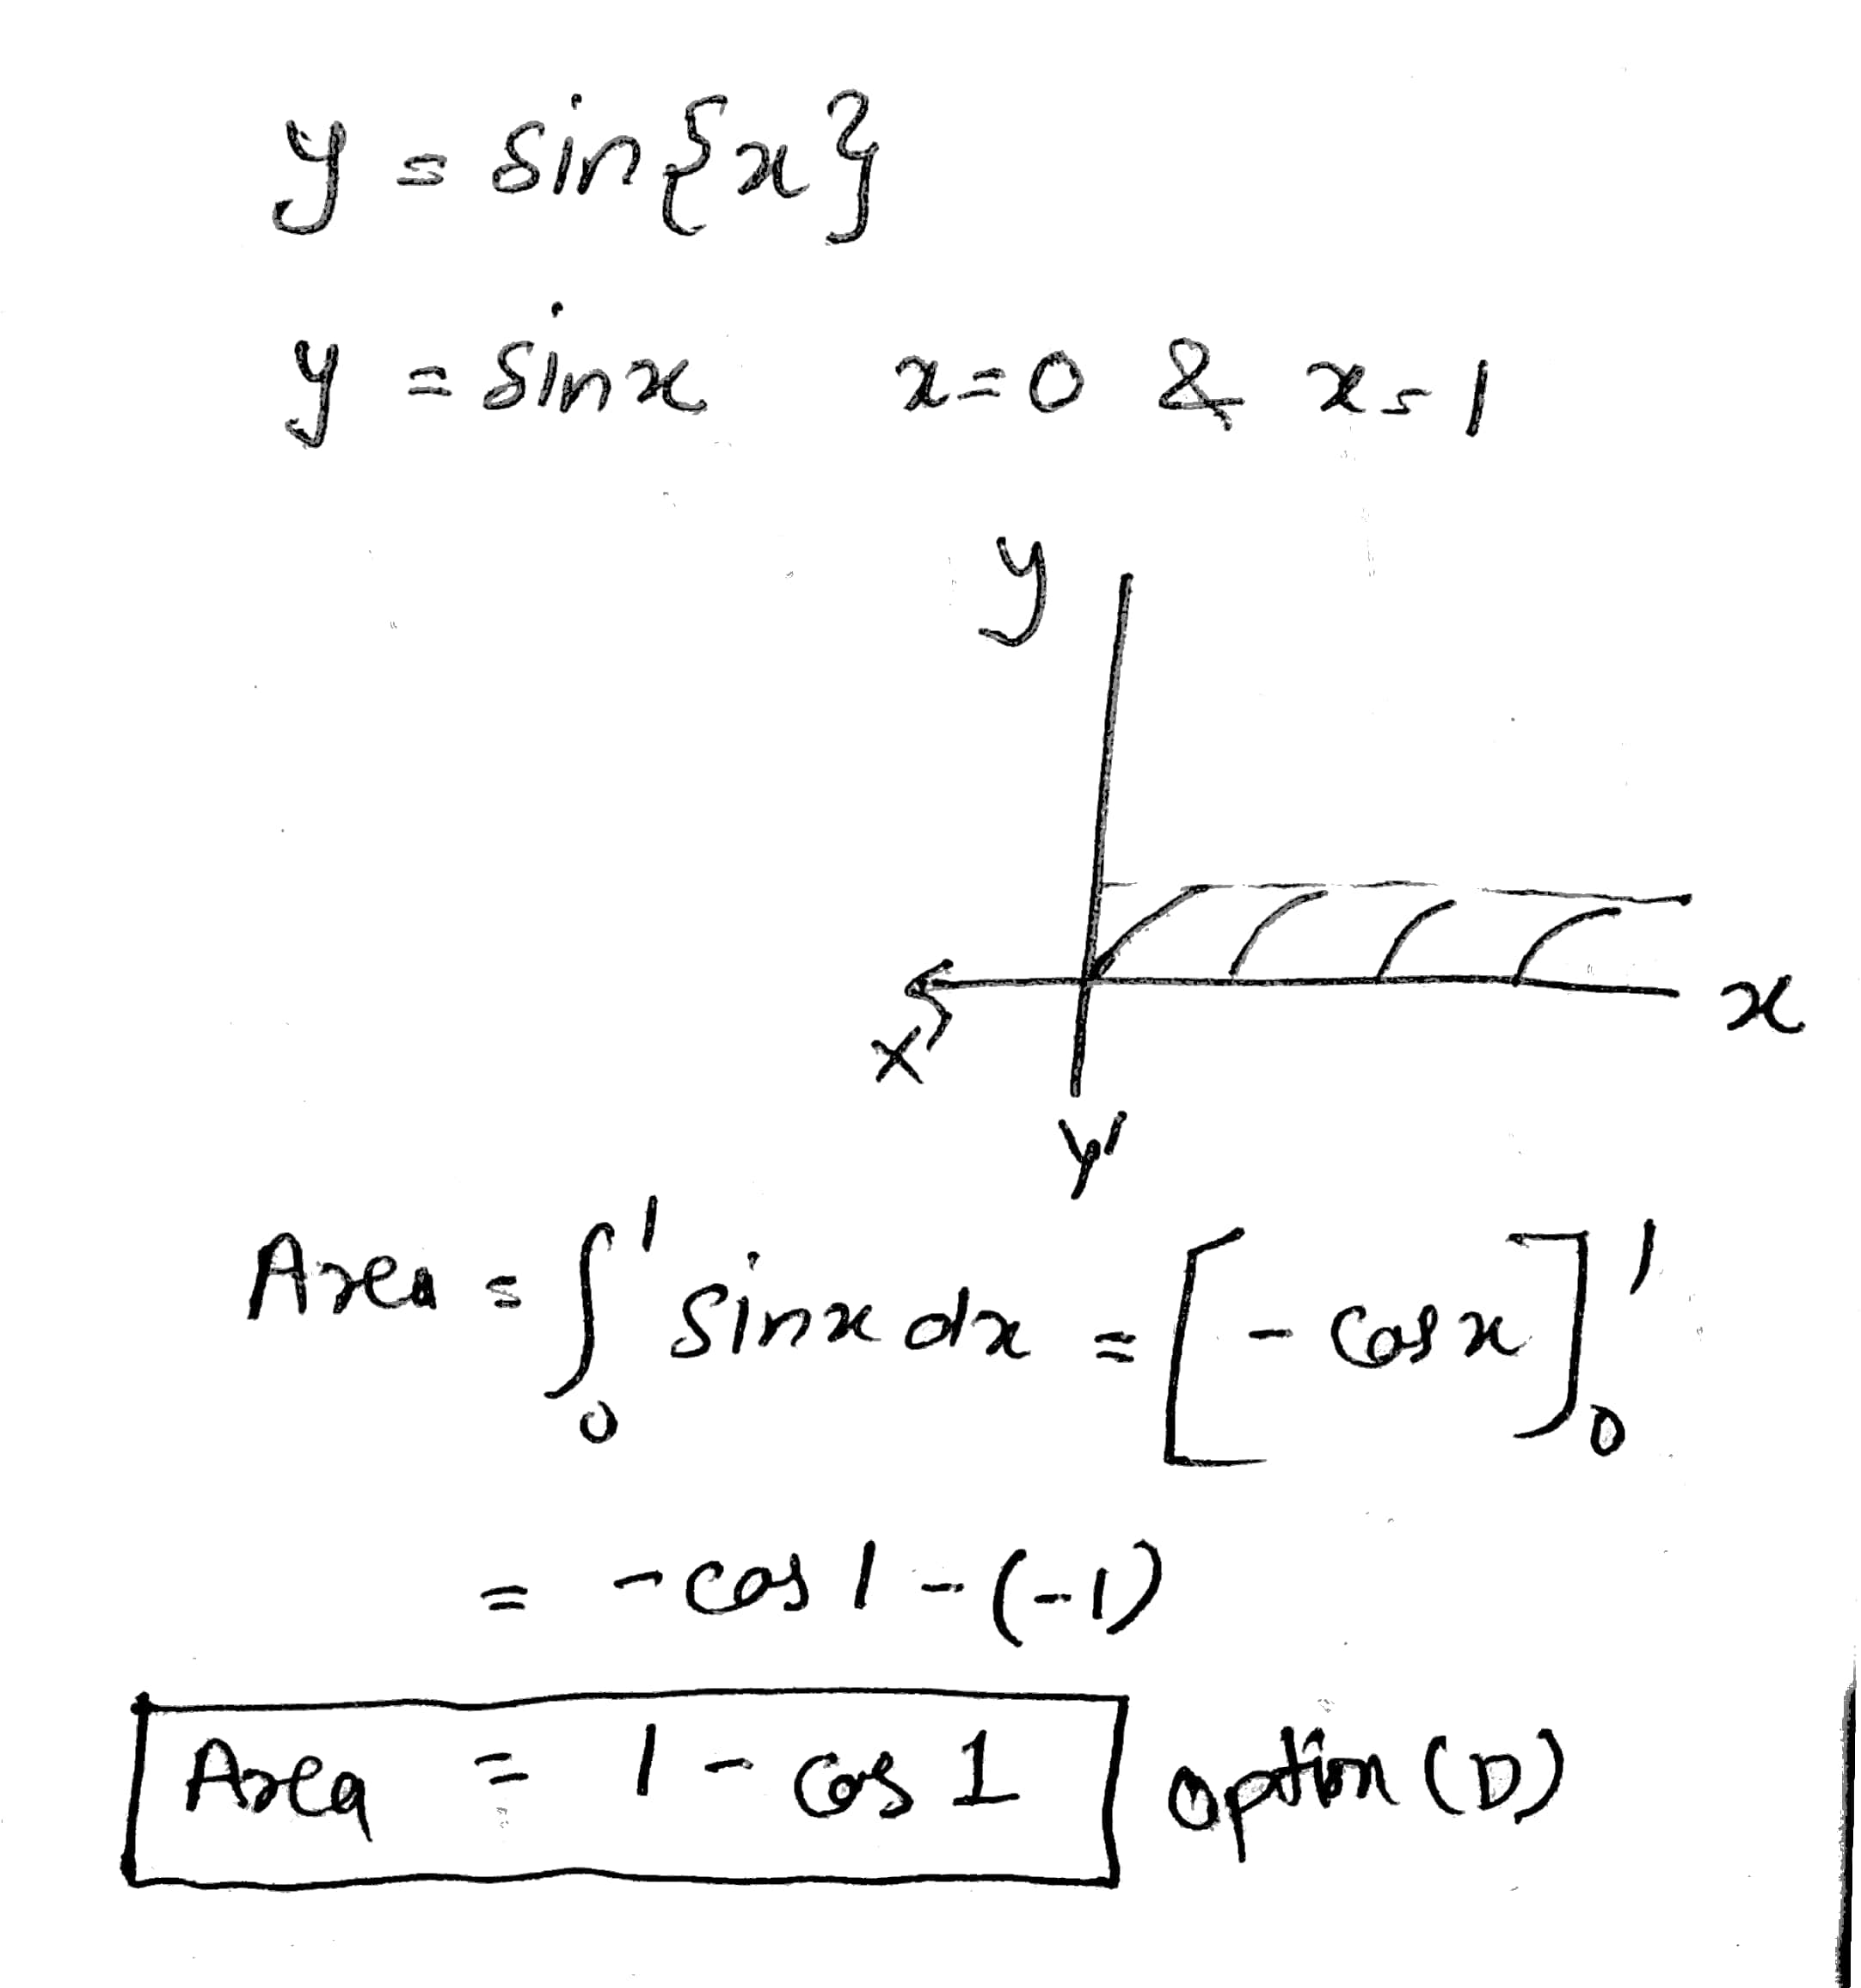 y = sin{x}
y = sinx x=0 & x=1
y
x
x'
y'
Area = ∫₀¹ sinx dx = [- cosx]₀¹
= -cos 1 - (-1)
Area = 1 - cos 1 option (D)